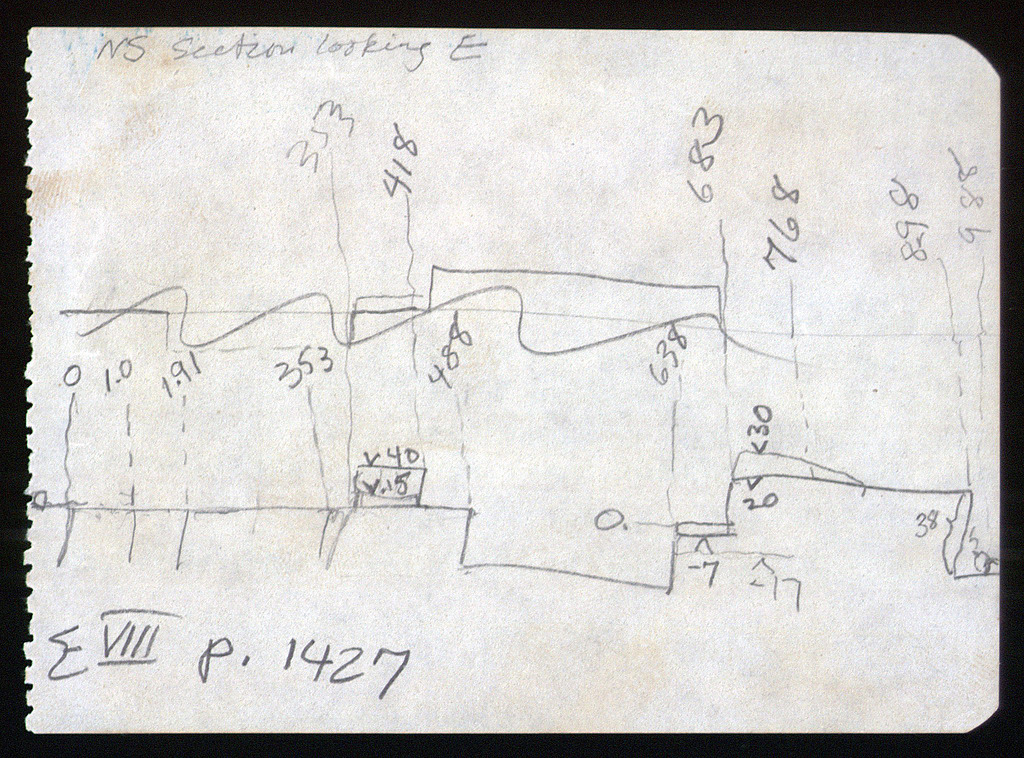 NS Section looking E
353
418
683
768
898
988
0
1.0
1.91
353
488
638
v40
v.18
<30
20
0
0.
-7
-17
38
Σ VIII p. 1427